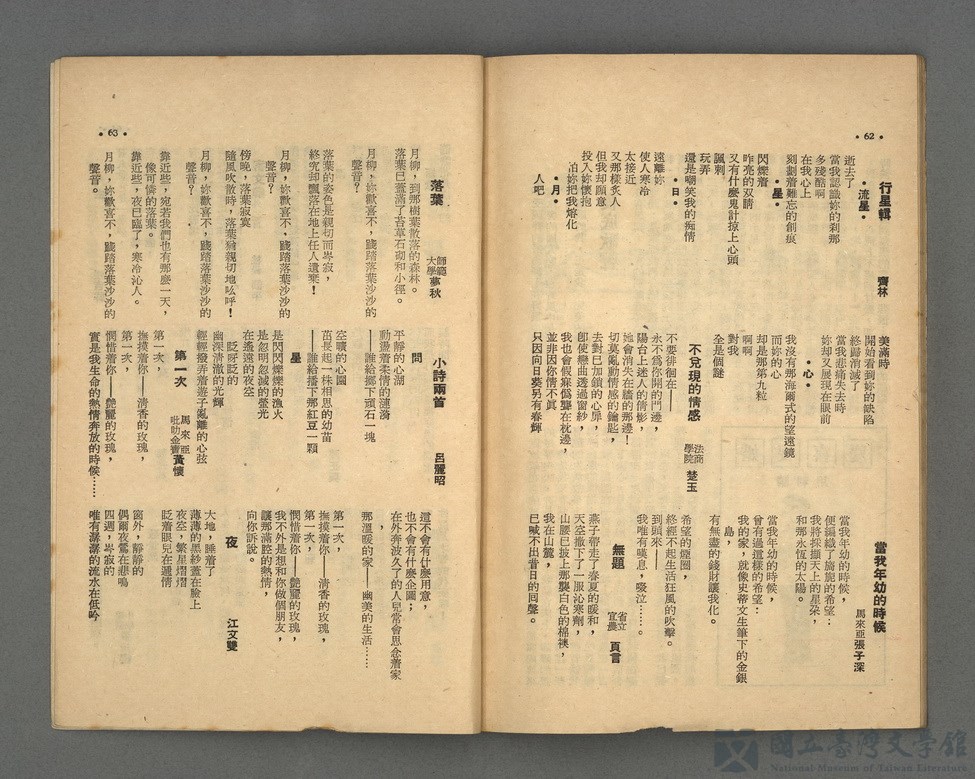 •62•
行星輯
齊林
•流星•
逝去了
當我認識妳的刹那
多殘酷啊
在我心上
刻劃着難忘的創痕
•星•
閃爍着
昨亮的双睛
又有什麼鬼計掠上心頭
諷刺
玩弄
還是嘲笑我的痴情
•日•
遠離妳
使人寒冷
太接近
又那樣炙人
但我却願意
投入妳懷抱
怕妳把我熔化
•月•
人吧
美滿時
開始看到妳的缺陷
終歸消滅了
當我悲痛失去時
妳却又展現在眼前
•心•
我沒有那海爾式的望遠鏡
而妳的心
却是那第九粒
啊啊
對我
全是個謎
不兌現的情感
法商學院 楚玉
不要徘徊在——
永不爲你開的門邊，
陽台上迷人的倩影，
她會消失在牆的那邊！
切莫亂動情感的鑰匙，
去對已加鎖的心扉，
卽使戀曲透過窗紗，
我也會假寐僞聾在枕邊，
並非因你情不眞
只因向日葵另有春輝
當我年幼的時候
馬來亞 張子深
當我年幼的時候，
便編織了旖旎的希望：
我將採擷天上的星朶，
和那永恆的太陽。
當我年幼的時候，
曾有過這樣的希望：
我的家，就像史蒂文生筆下的金銀
島，
有無盡的錢財讓我化。
希望的煙圈，
終經不起生活狂風的吹擊。
到頭來——
我唯有嘆息，啜泣……。
無題
省立宜農 頁言
燕子帶走了春夏的暖和，
天空撒下了一服沁寒劑，
山腰已披上那襲白色的棉襖，
我在山麓，
已喊不出昔日的囘聲。
•63•
落葉
師範大學 夢秋
月柳，到那樹葉散落的森林。
落葉已蓋滿了苔草石砌和小徑。
月柳，妳歡喜不，踐踏落葉沙沙的
聲音？
落葉的姿色是親切而岑寂，
終究却飄落在地上任人遺棄！
月柳，妳歡喜不，踐踏落葉沙沙的
聲音？
傍晚，落葉寂寞
隨風吹散時，落葉猶親切地吆呼！
月柳，妳歡喜不，踐踏落葉沙沙的
聲音？
靠近些，宛若我們也有那麽一天，
像可憐的落葉。
靠近些，夜已臨了，寒冷沁人。
月柳，妳歡喜不，踐踏落葉沙沙的
聲音。
小詩兩首
呂麗昭
問
平靜的心湖
動盪着柔情的漣漪
——誰給擲下頑石一塊
空曠的心園
茁長起一株相思的幼苗
——誰給播下那紅豆一顆
星
是閃閃爍爍的漁火
是忽明忽滅的螢光
在遙遠的夜空
眨呀眨的
幽深清澈的光輝
輕輕撥弄着遊子亂離的心弦
第一次
馬來亞 吡叻金寶 黃懷
第一次，
撫摸着你——清香的玫瑰，
第一次，
憫惜着你——艷麗的玫瑰，
實是我生命的熱情奔放的時候……
這不會有什麼用意，
也不會有什麼企圖；
在外奔波久了的人兒常會思念着家
，
那溫暖的家——幽美的生活……
第一次，
撫摸着你——清香的玫瑰，
第一次，
憫惜着你——艷麗的玫瑰，
我不外是想和你做個朋友，
讓那滿腔的熱情，
向你訴說。
夜
江文雙
大地，睡着了
薄薄的黑紗蓋在臉上
夜空，繁星熠熠
眨着眼兒在逓情
窗外，靜靜的
偶爾夜鶯在悲鳴
四週，岑寂的
唯有潺潺的流水在低吟
國立臺灣文學館
National Museum of Taiwan Literature